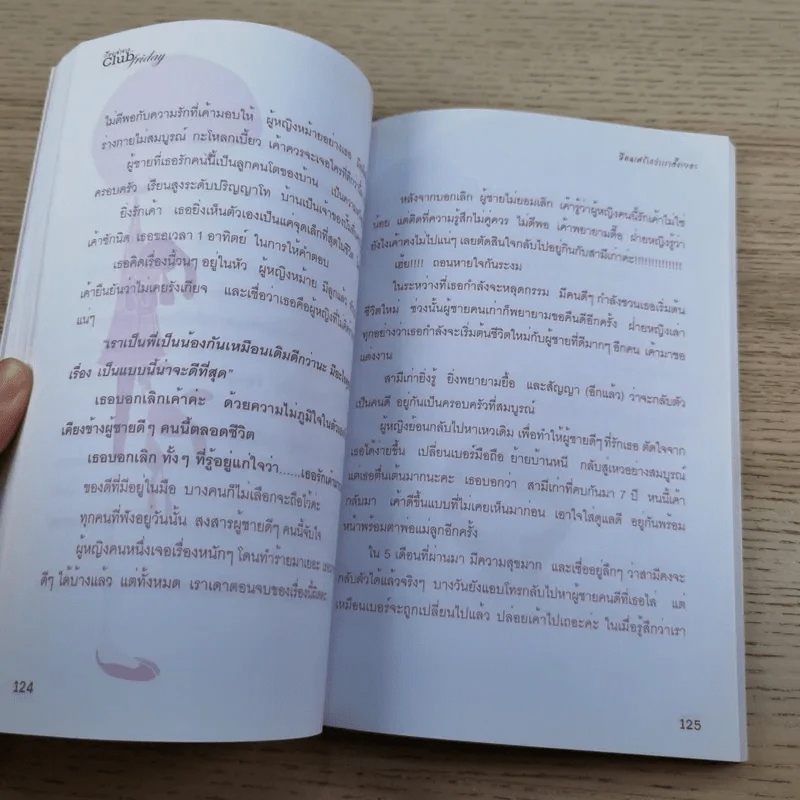 Club
friday
ไม่ดีพอกับความรักที่เค้ามอบให้ ผู้หญิงหม้ายอย่างเธอ
ร่างกายไม่สมบูรณ์ กะโหลกเบี้ยว เค้าควรจะเจอใครที่ดีกว่า
ผู้ชายที่เธอรักคนนี้เป็นลูกคนโตของบ้าน เป็นความ
ครอบครัว เรียนสูงระดับปริญญาโท บ้านเป็นเจ้าของ
ยิ่งรักเค้า เธอยิ่งเห็นตัวเองเป็นแค่จุดเล็กที่สุดในชีวิต
เค้าซักนิด เธอขอเวลา 1 อาทิตย์ ในการให้คำตอบ
เธอคิดเรื่องนี้วนๆ อยู่ในหัว ผู้หญิงหม้าย มีลูกแล้ว
เค้ายืนยันว่าไม่เคยรังเกียจ และเชื่อว่าเธอคือผู้หญิงที่
แน่ๆ
"เราเป็นพี่เป็นน้องกันเหมือนเดิมดีกว่านะ มีอะไร
เรื่อง เป็นแบบนี้น่าจะดีที่สุด"
เธอบอกเลิกเค้าค่ะ ด้วยความไม่ภูมิใจในตัว
เคียงข้างผู้ชายดีๆ คนนี้ตลอดชีวิต
เธอบอกเลิก ทั้งๆ ที่รู้อยู่แก่ใจว่า......เธอรักเค้า
ของดีที่มีอยู่ในมือ บางคนก็ไม่เลือกจะถือไว้ค่ะ
ทุกคนที่ฟังอยู่วันนั้น สงสารผู้ชายดีๆ คนนี้จับใจ
ผู้หญิงคนหนึ่งเจอเรื่องหนักๆ โดนทำร้ายมาเยอะ
ดีๆ ได้บ้างแล้ว แต่ทั้งหมด เราเดาตอนจบของเรื่องนี้ผิด
124
หลังจากบอกเลิก ผู้ชายไม่ยอมเลิก เค้ารู้ว่าผู้หญิงคนนี้รักเค้าไม่ใช่
น้อย แต่ติดที่ความรู้สึกไม่คู่ควร ไม่ดีพอ เค้าพยายามตื๊อ ฝ่ายหญิงรู้ว่า
ยังไงเค้าคงไม่ไปแน่ๆ เลยตัดสินใจกลับไปอยู่กินกับสามีเก่าค่ะ!!!!!!!!!!!!!
เฮ้ย!!!! ถอนหายใจกันระงม
ในระหว่างที่เธอกำลังจะหลุดกรรม มีคนดีๆ กำลังชวนเธอเริ่มต้น
ชีวิตใหม่ ช่วงนั้นผู้ชายคนเก่าก็พยายามขอคืนดีอีกครั้ง ฝ่ายหญิงเล่า
ทุกอย่างว่าเธอกำลังจะเริ่มต้นชีวิตใหม่กับผู้ชายที่ดีมากๆ อีกคน เค้ามาขอ
แต่งงาน
สามีเก่ายิ่งรู้ ยิ่งพยายามยื้อ และสัญญา (อีกแล้ว) ว่าจะกลับตัว
เป็นคนดี อยู่กันเป็นครอบครัวที่สมบูรณ์
ผู้หญิงย้อนกลับไปหาเหวเดิม เพื่อทำให้ผู้ชายดีๆ ที่รักเธอ ตัดใจจาก
เธอได้ง่ายขึ้น เปลี่ยนเบอร์มือถือ ย้ายบ้านหนี กลับสู่เหวอย่างสมบูรณ์
แต่เธอตื่นเต้นมากนะคะ เธอบอกว่า สามีเก่าที่คบกันมา 7 ปี หนนี้เค้า
กลับมา เค้าดีขึ้นแบบที่ไม่เคยเห็นมาก่อน เอาใจใส่ดูแลดี อยู่กันพร้อม
หน้าพร้อมตาพ่อแม่ลูกอีกครั้ง
ใน 5 เดือนที่ผ่านมา มีความสุขมาก และเชื่ออยู่ลึกๆ ว่าสามีคงจะ
กลับตัวได้แล้วจริงๆ บางวันยังแอบโทรกลับไปหาผู้ชายคนดีที่เธอไล่ แต่
เหมือนเบอร์จะถูกเปลี่ยนไปแล้ว ปล่อยเค้าไปเถอะค่ะ ในเมื่อรู้สึกว่าเรา
125